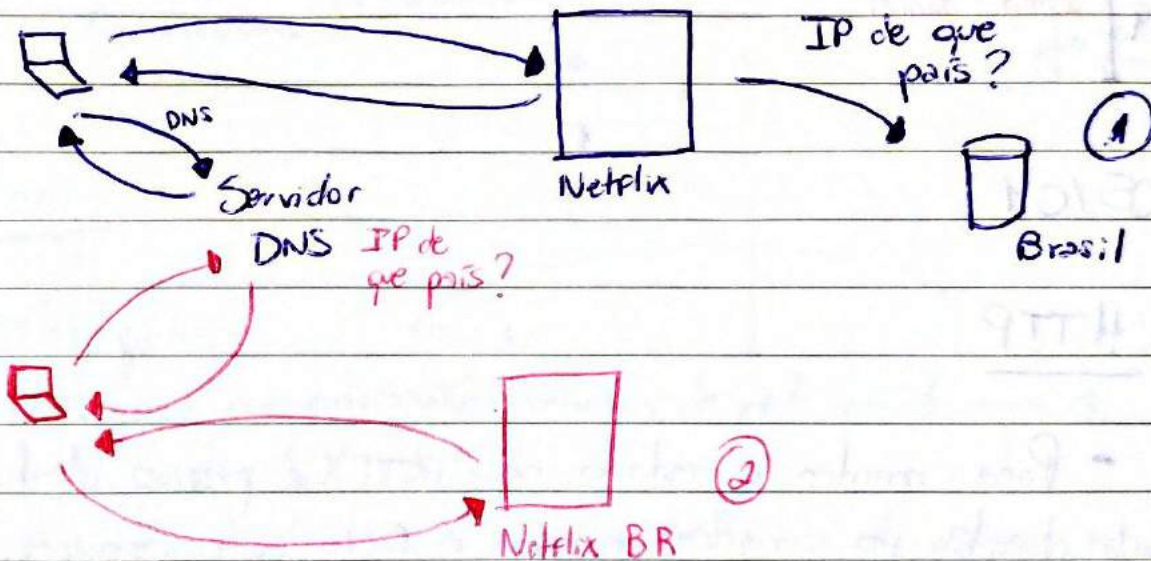 IP de que
país?
1
DNS
Servidor
DNS
Netflix
Brasil
IP de
que país?
HTTP
2
Netflix BR